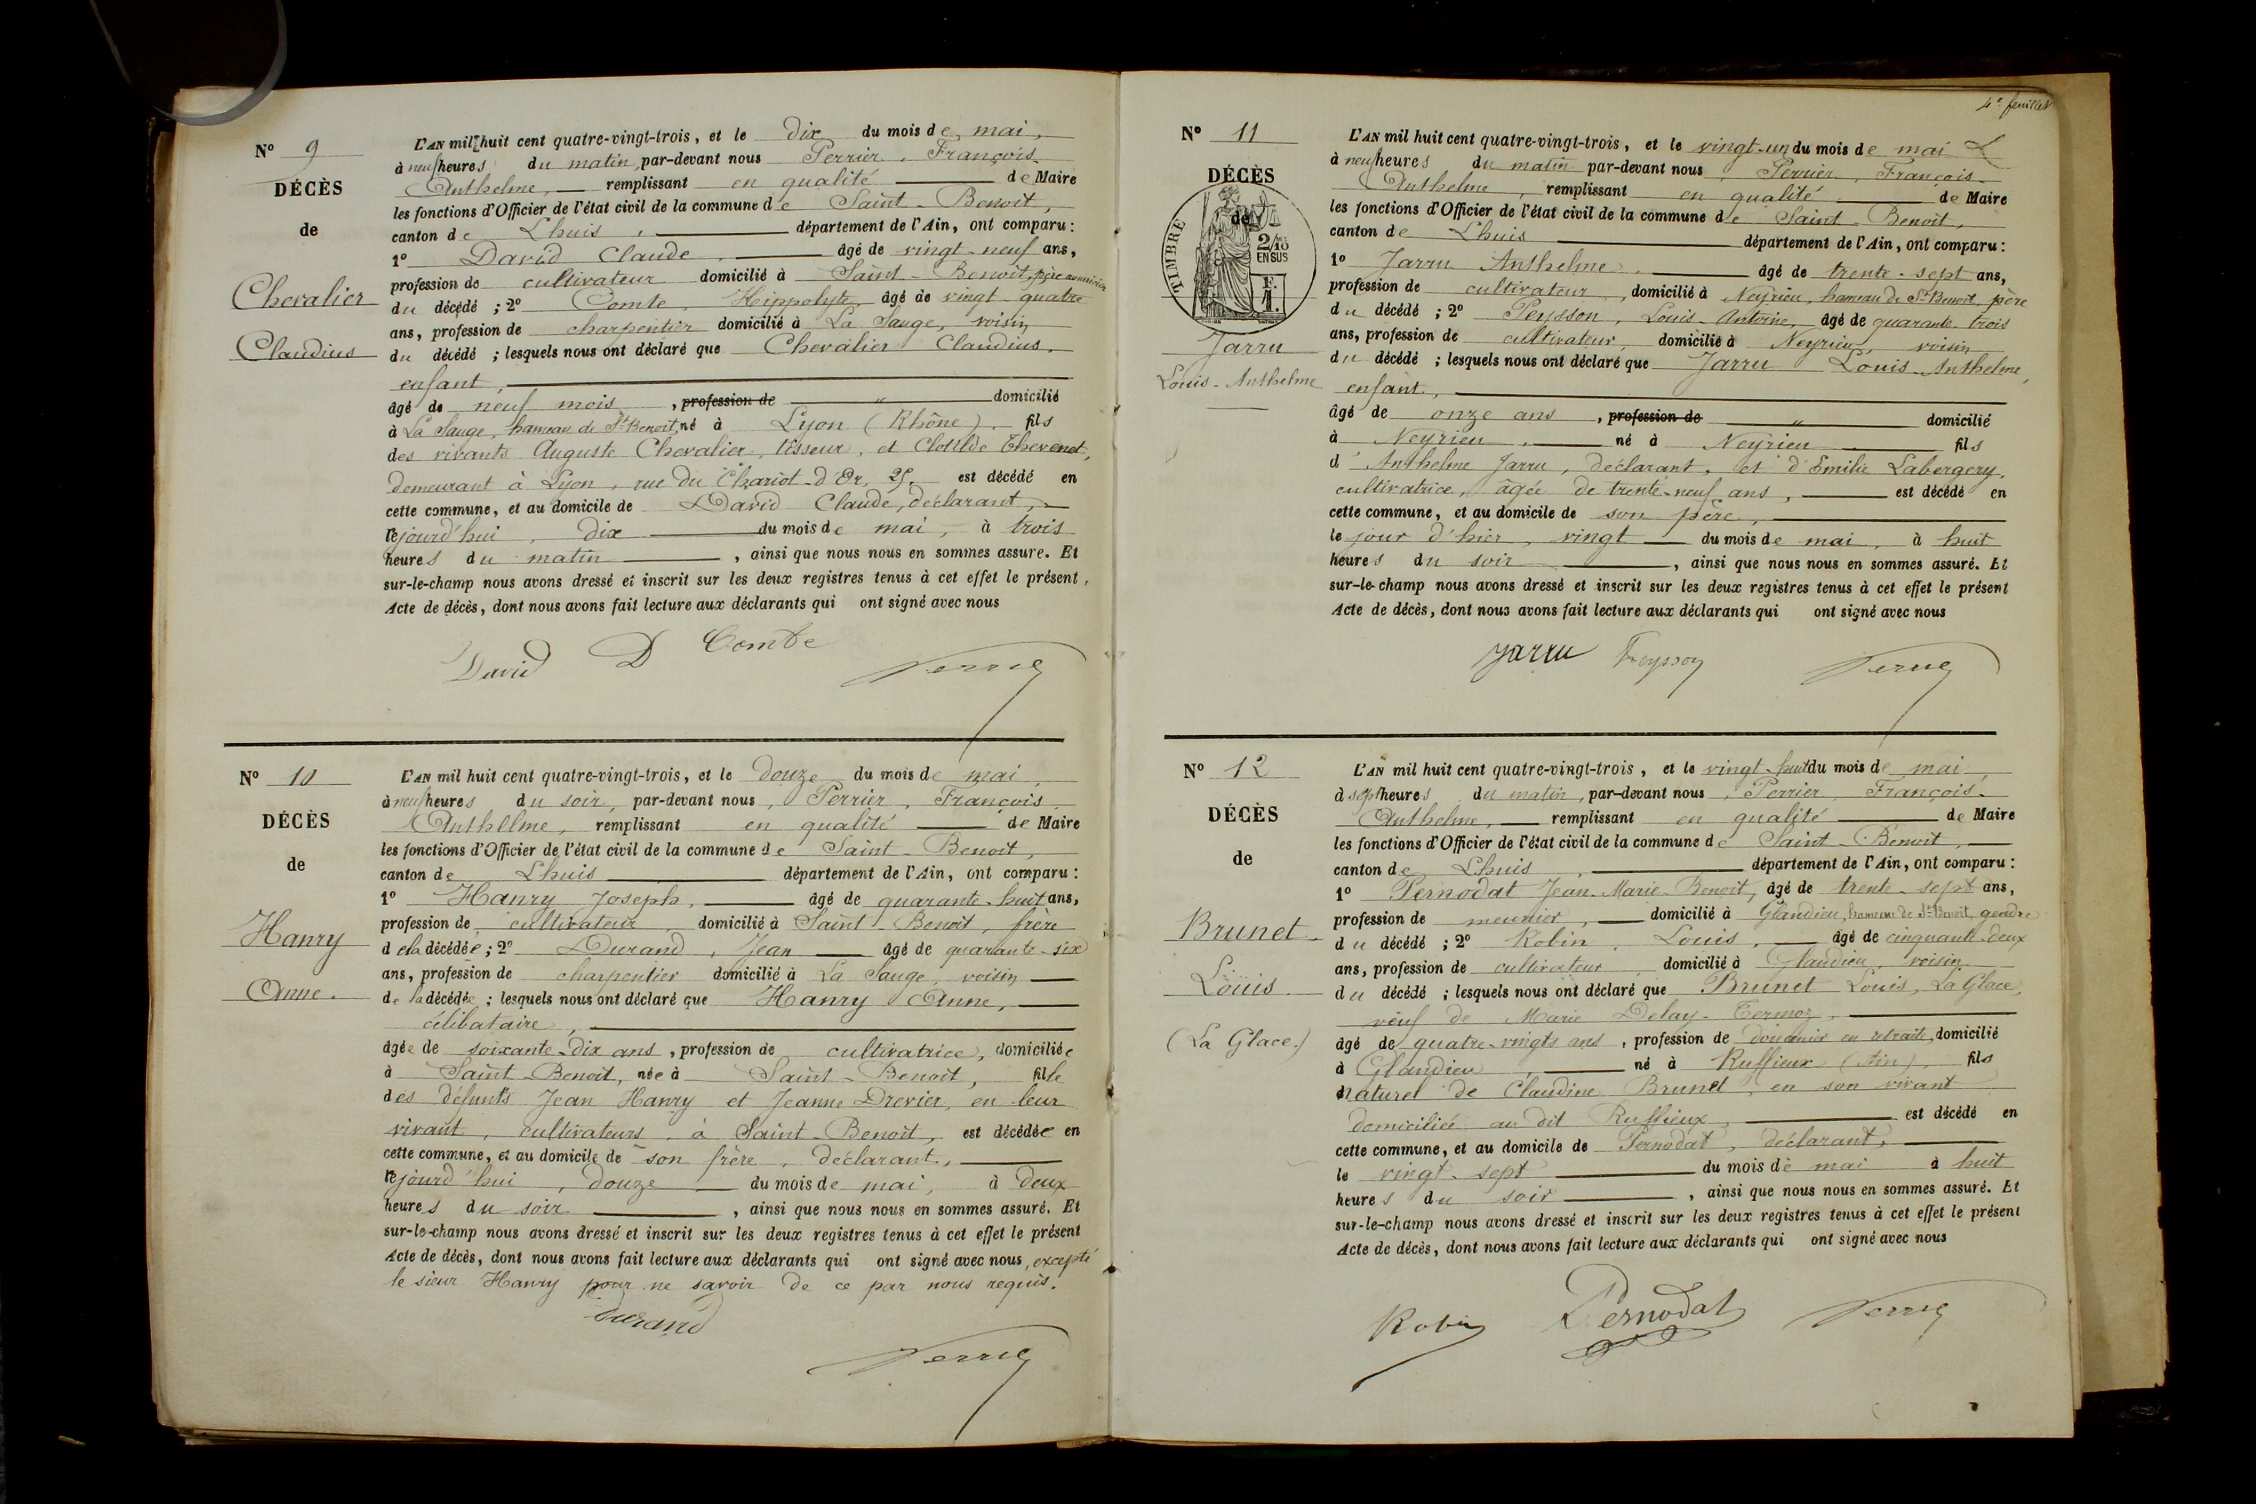 N° 9
DÉCÈS
de
Chevalier
Claudius
L'AN mil huit cent quatre-vingt-trois, et le dix du mois de mai,
à neuf heures du matin, par-devant nous Perrier, François-
Anthelme, remplissant en qualité de Maire
les fonctions d'Officier de l'état civil de la commune de Saint-Benoit,
canton de Lhuis, département de l'Ain, ont comparu:
1° David Claude, âgé de vingt-neuf ans,
profession de cultivateur domicilié à Saint-Benoit, père nourricier
du décédé; 2° Comte, Hippolyte, âgé de vingt-quatre
ans, profession de charpentier domicilié à La Sauge, voisin
du décédé; lesquels nous ont déclaré que Chevalier Claudius,
enfant,
âgé de neuf mois, profession de " domicilié
à La Sauge, hameau de St Benoit, né à Lyon (Rhône), fils
des vivants Auguste Chevalier, tisseur, et Clotilde Thevenet,
demeurant à Lyon, rue du Chariot-d'Or, 25. est décédé en
cette commune, et au domicile de David Claude, déclarant,
lejourd'hui, dix du mois de mai, à trois
heures du matin, ainsi que nous nous en sommes assuré. Et
sur-le-champ nous avons dressé et inscrit sur les deux registres tenus à cet effet le présent
Acte de décès, dont nous avons fait lecture aux déclarants qui ont signé avec nous
David D Comte
Perrier
N° 10
DÉCÈS
de
Hanry
Anne.
L'AN mil huit cent quatre-vingt-trois, et le douze du mois de mai,
à neuf heures du soir, par-devant nous, Perrier, François
Anthelme, remplissant en qualité de Maire
les fonctions d'Officier de l'état civil de la commune de Saint-Benoit,
canton de Lhuis département de l'Ain, ont comparu:
1° Hanry Joseph, âgé de quarante-huit ans,
profession de cultivateur, domicilié à Saint-Benoit, frère
de la décédée; 2° Durand, Jean âgé de quarante-six
ans, profession de charpentier domicilié à La Sauge, voisin
de la décédée; lesquels nous ont déclaré que Hanry Anne,
célibataire,
âgée de soixante-dix ans, profession de cultivatrice, domiciliée
à Saint-Benoit, née à Saint-Benoit, fille
des défunts Jean Hanry et Jeanne Drevier, en leur
vivant, cultivateurs à Saint-Benoit, est décédée en
cette commune, et au domicile de son frère, déclarant,
lejourd'hui, douze du mois de mai, à deux
heures du soir, ainsi que nous nous en sommes assuré. Et
sur-le-champ nous avons dressé et inscrit sur les deux registres tenus à cet effet le présent
Acte de décès, dont nous avons fait lecture aux déclarants qui ont signé avec nous, excepté
le sieur Hanry pour ne savoir de ce par nous requis.
Durand
Perrier
4e feuillet
N° 11
DÉCÈS
de
TIMBRE
2/10
EN SUS
F.
1.
Jarru
Louis-Anthelme
L'AN mil huit cent quatre-vingt-trois, et le vingt-un du mois de mai
à neuf heures du matin par-devant nous, Perrier, François-
Anthelme, remplissant en qualité de Maire
les fonctions d'Officier de l'état civil de la commune de Saint-Benoit,
canton de Lhuis département de l'Ain, ont comparu:
1° Jarru Anthelme, âgé de trente-sept ans,
profession de cultivateur, domicilié à Neyrieu, hameau de St-Benoit, père
du décédé; 2° Peysson, Louis-Antoine, âgé de quarante-trois
ans, profession de cultivateur, domicilié à Neyrieu, voisin
du décédé; lesquels nous ont déclaré que Jarru Louis-Anthelme,
enfant,
âgé de onze ans, profession de " domicilié
à Neyrieu, né à Neyrieu fils
d'Anthelme Jarru, déclarant, et d'Emilie Labergery,
cultivatrice, âgée de trente-neuf ans, est décédé en
cette commune, et au domicile de son père,
le jour d'hier, vingt du mois de mai, à huit
heures du soir, ainsi que nous nous en sommes assuré. Et
sur-le-champ nous avons dressé et inscrit sur les deux registres tenus à cet effet le présent
Acte de décès, dont nous avons fait lecture aux déclarants qui ont signé avec nous
Jarru Peysson
Perrier
N° 12
DÉCÈS
de
Brunet
Louis
(La Glace.)
L'AN mil huit cent quatre-vingt-trois, et le vingt-huit du mois de mai
à sept heures du matin, par-devant nous, Perrier François-
Anthelme, remplissant en qualité de Maire
les fonctions d'Officier de l'état civil de la commune de Saint-Benoit,
canton de Lhuis, département de l'Ain, ont comparu:
1° Pernodat Jean-Marie-Benoit, âgé de trente-sept ans,
profession de meunier, domicilié à Glandieu, hameau de St-Benoit, gendre
du décédé; 2° Robin, Louis, âgé de cinquante-deux
ans, profession de cultivateur domicilié à Glandieu, voisin
du décédé; lesquels nous ont déclaré que Brunet Louis, La Glace,
veuf de Marie Delay-Termoz,
âgé de quatre-vingts ans, profession de douanier en retraite, domicilié
à Glandieu, né à Ruffieux (Ain), fils
naturel de Claudine Brunet, en son vivant
domiciliée au dit Ruffieux, est décédé en
cette commune, et au domicile de Pernodat, déclarant,
le vingt-sept du mois de mai à huit
heures du soir, ainsi que nous nous en sommes assuré. Et
sur-le-champ nous avons dressé et inscrit sur les deux registres tenus à cet effet le présent
Acte de décès, dont nous avons fait lecture aux déclarants qui ont signé avec nous
Robin Pernodat Perrier